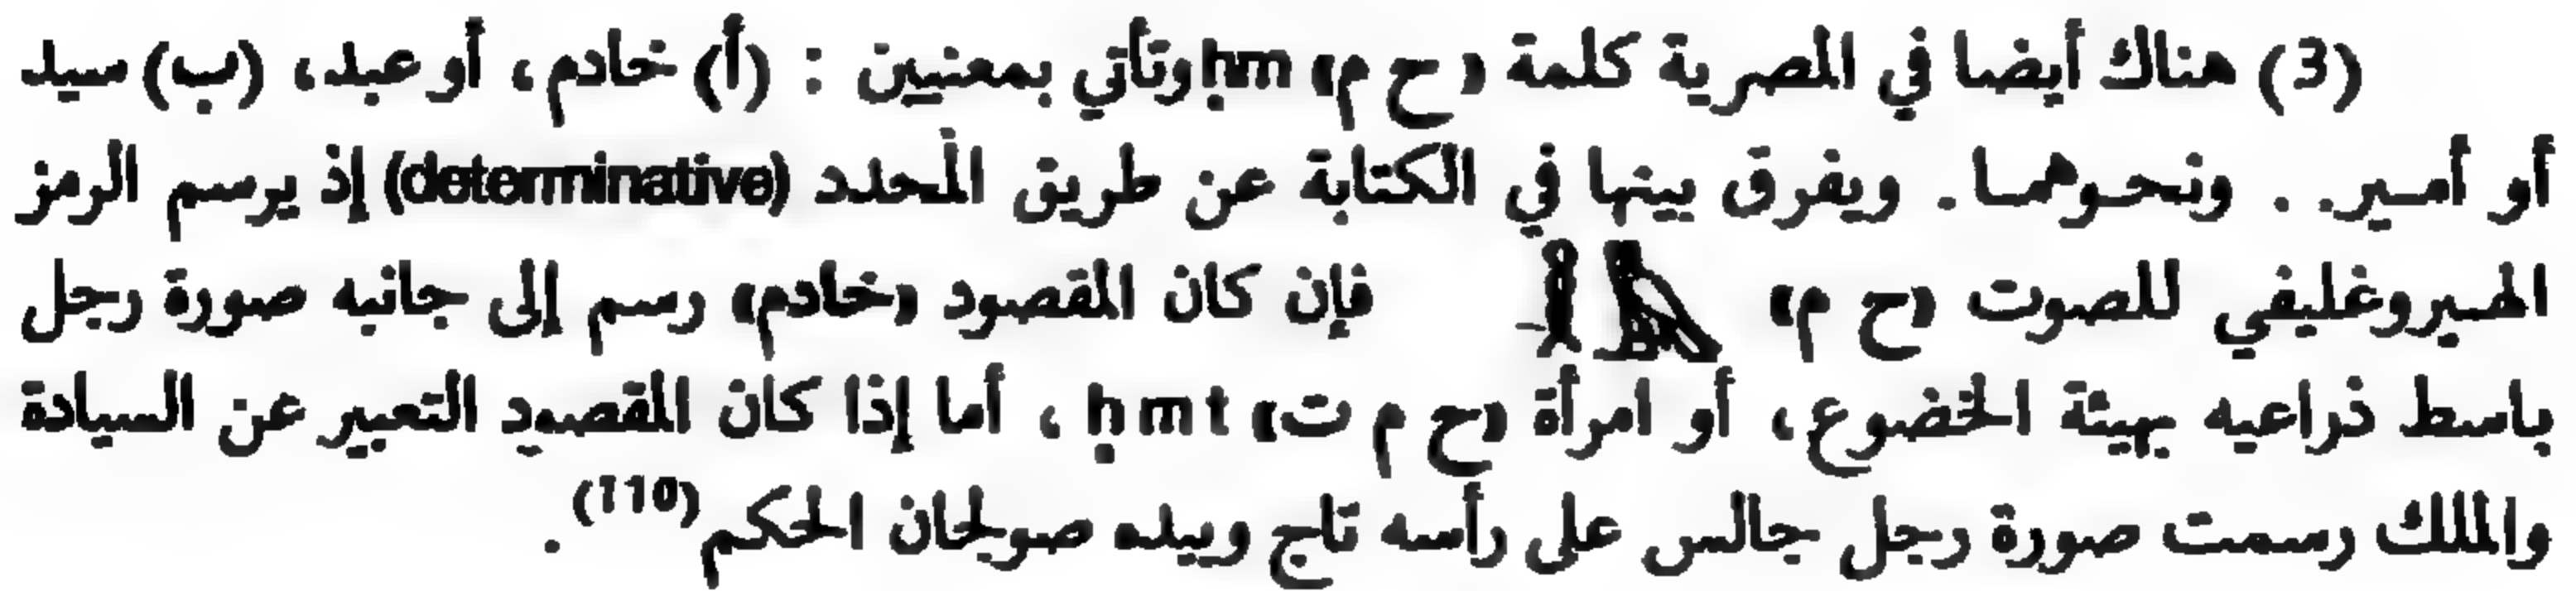 (3) هناك أيضا في المصرية كلمة «ح م» ḥm وتأتي بمعنيين : (أ) خادم، أو عبد، (ب) سيد
أو أمير. . ونحوهما. ويفرق بينها في الكتابة عن طريق المُحدد (determinative) إذ يرسم الرمز
الهيروغليفي للصوت «ح م» فإن كان المقصود «خادم» رسم إلى جانبه صورة رجل
باسط ذراعيه بهيئة الخضوع، أو امرأة «ح م ت» ḥmt ، أما إذا كان المقصود التعبير عن السيادة
والملك رسمت صورة رجل جالس على رأسه تاج وبيده صولجان الحكم(110) .